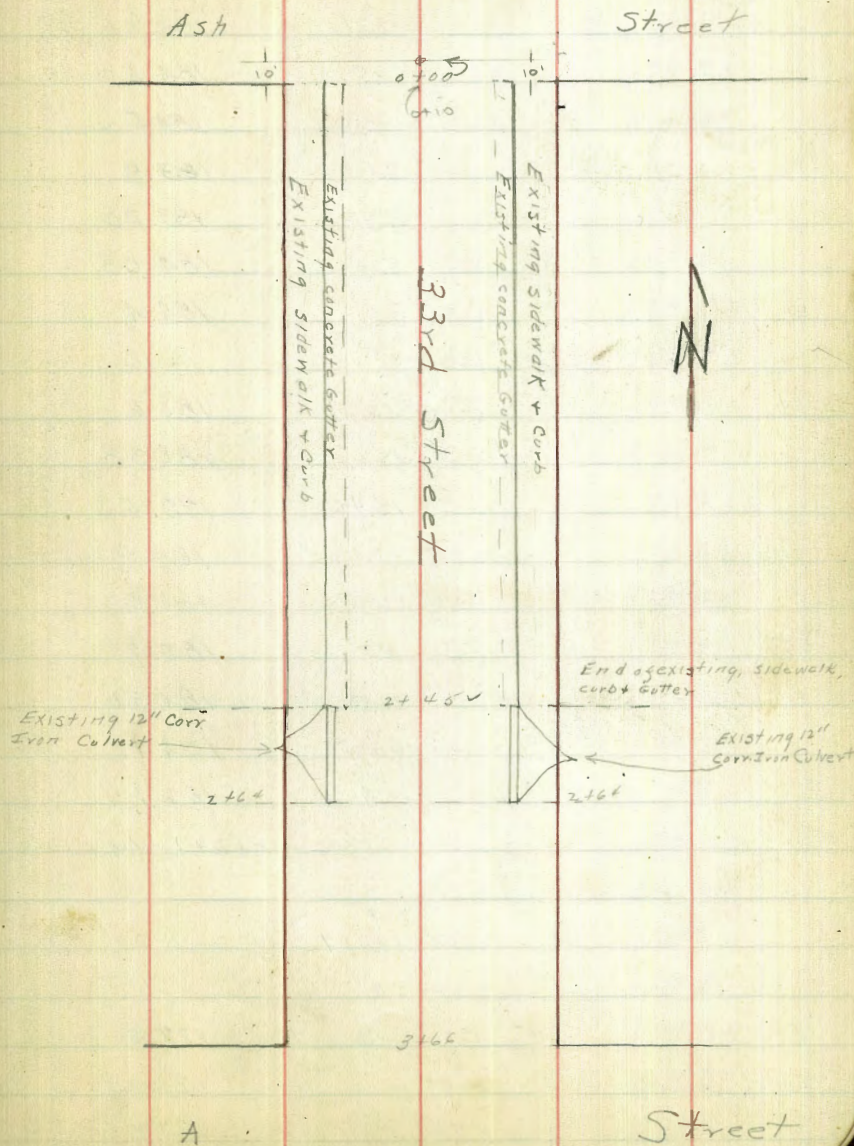 Ash Street
10' 0+00 10'
0+10
Existing sidewalk & Curb
Existing concrete Gutter
33rd Street
Existing concrete Gutter
Existing sidewalk & Curb
N
End of existing, sidewalk,
curb & Gutter
2+45
Existing 12" Corr
Iron Culvert
Existing 12"
Corr. Iron Culvert
3+66
A Street